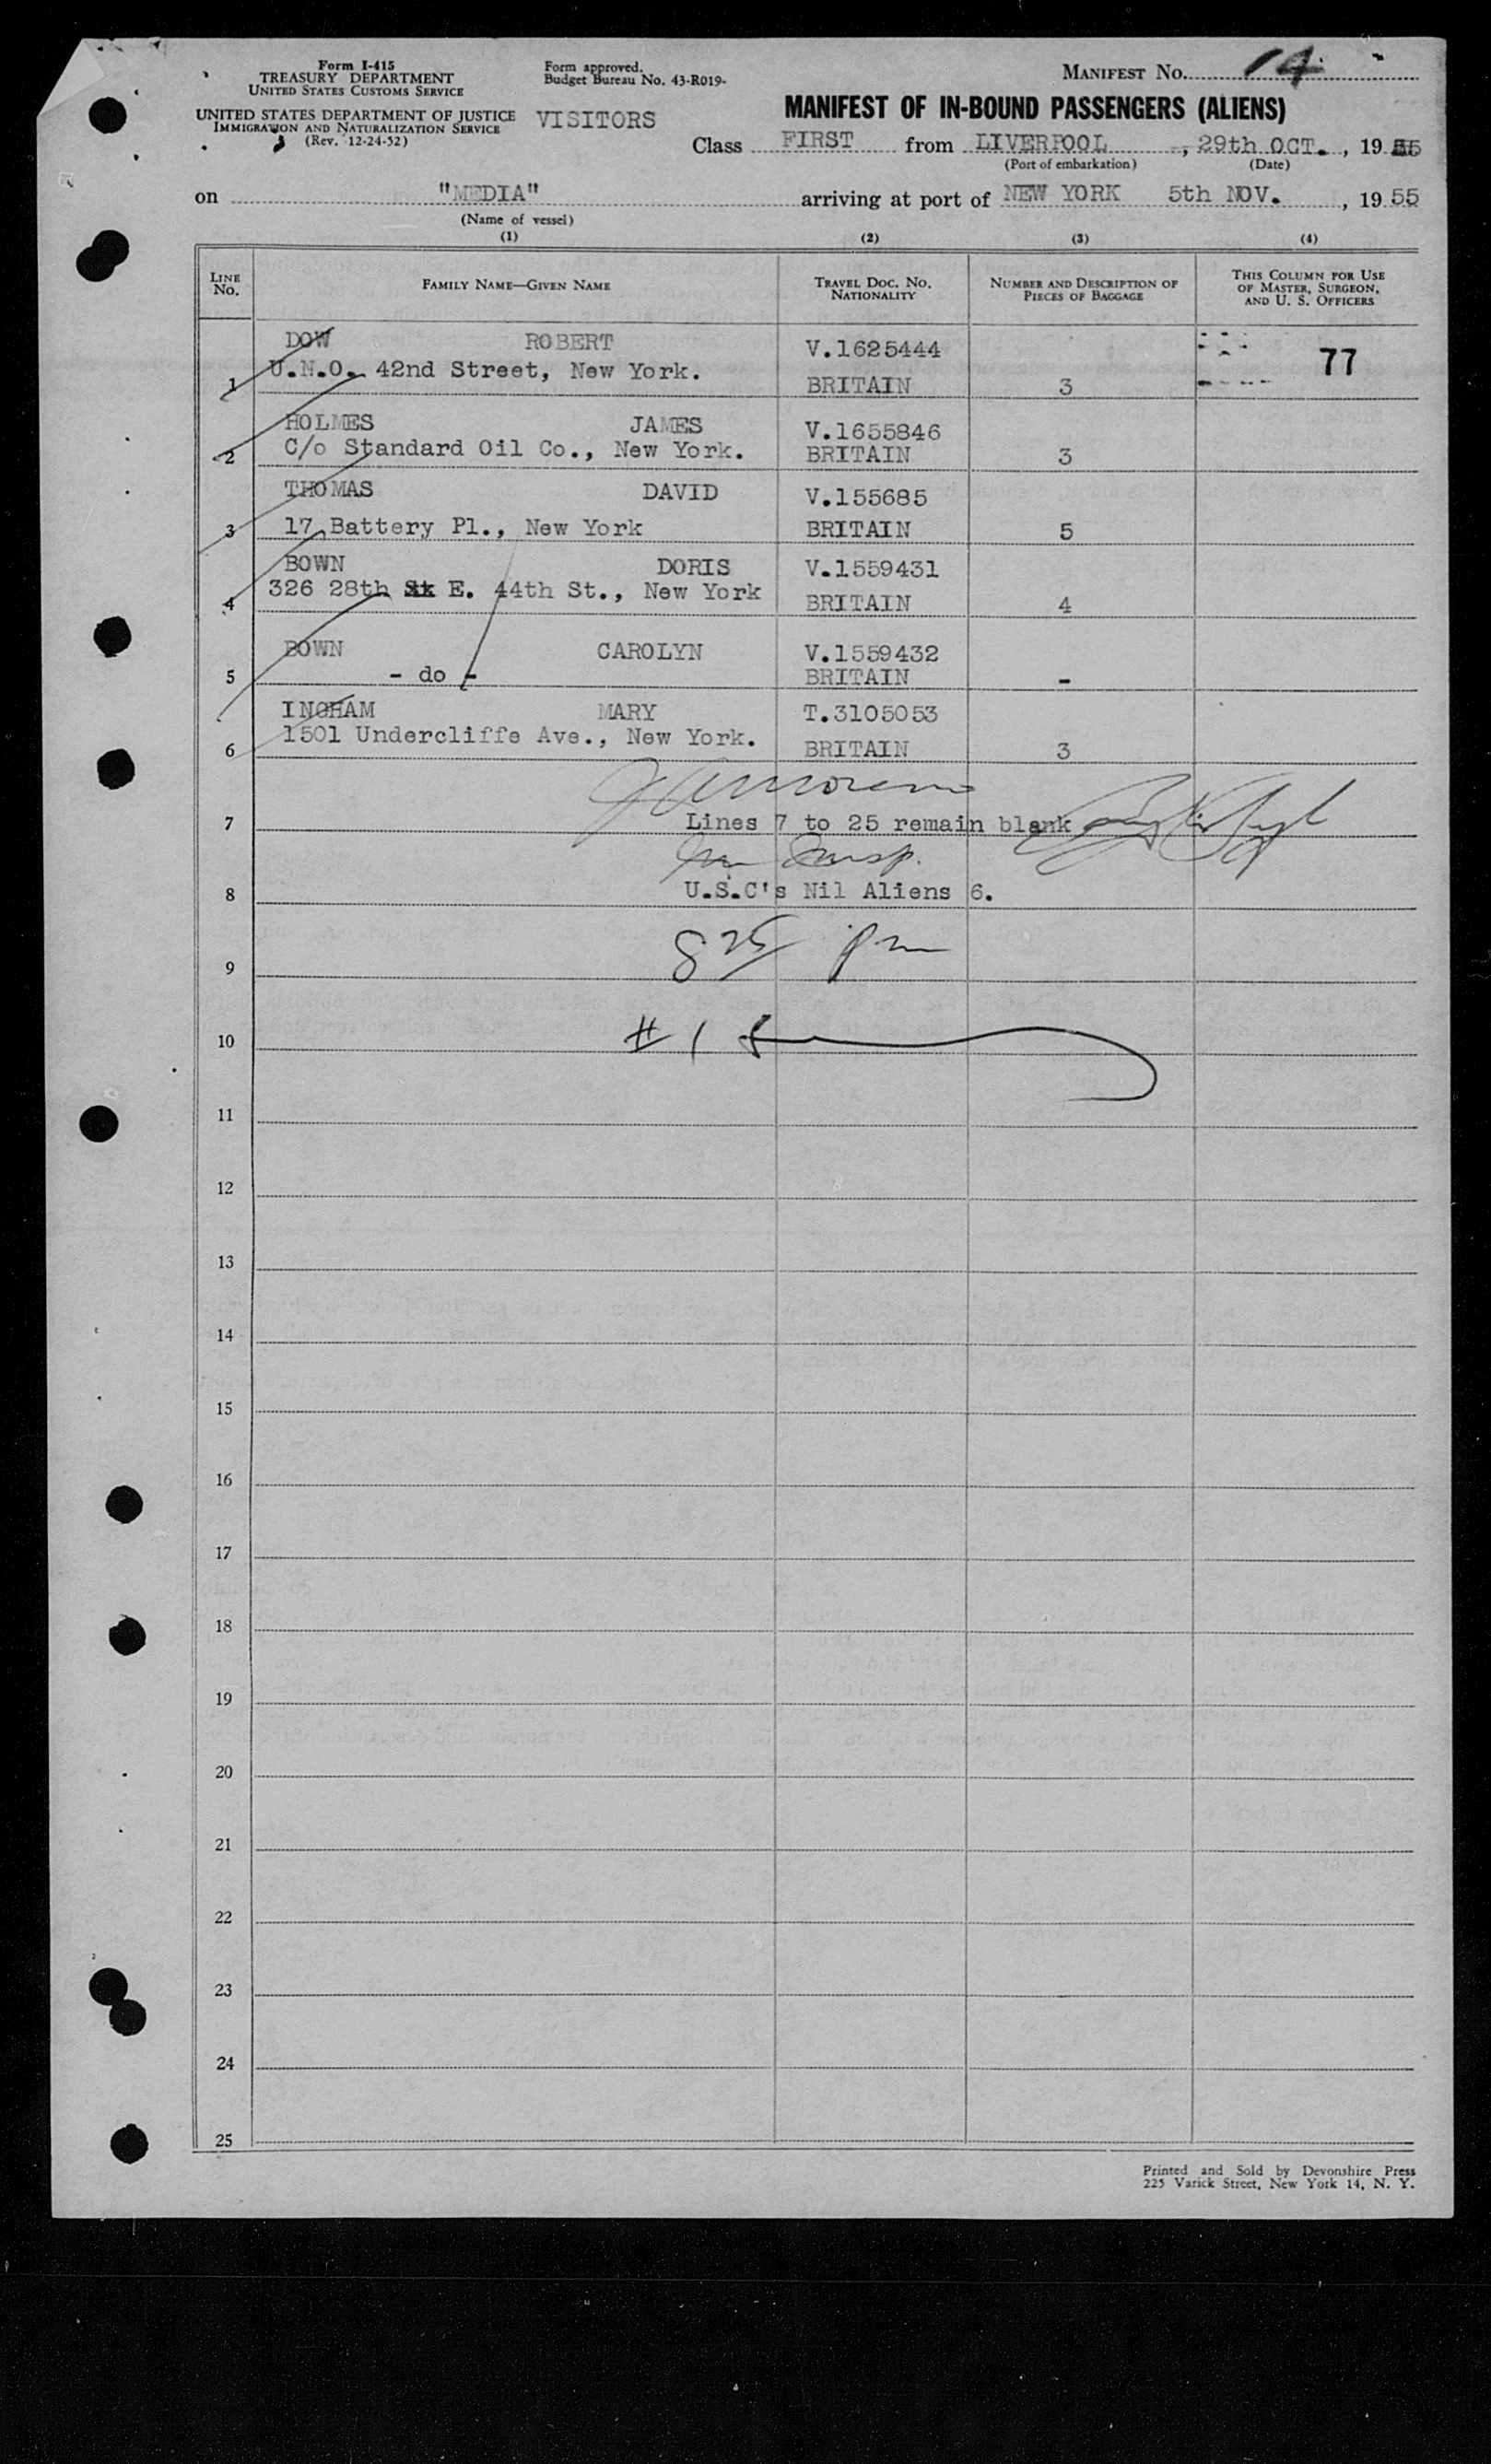 Form I-415
TREASURY DEPARTMENT
UNITED STATES CUSTOMS SERVICE
UNITED STATES DEPARTMENT OF JUSTICE
IMMIGRATION AND NATURALIZATION SERVICE
(Rev. 12-24-52)
Form approved.
Budget Bureau No. 43-R019-
VISITORS
MANIFEST No. 14
MANIFEST OF IN-BOUND PASSENGERS (ALIENS)
Class FIRST from LIVERPOOL, 29th OCT., 1955
(Port of embarkation) (Date)
on "MEDIA" arriving at port of NEW YORK 5th NOV., 1955
(Name of vessel)
(1) (2) (3) (4)
LINE No. FAMILY NAME—GIVEN NAME TRAVEL DOC. NO. NATIONALITY NUMBER AND DESCRIPTION OF PIECES OF BAGGAGE THIS COLUMN FOR USE OF MASTER, SURGEON, AND U. S. OFFICERS
DOW ROBERT V.1625444 77
1 U.N.O. 42nd Street, New York. BRITAIN 3
HOLMES JAMES V.1655846
2 C/o Standard Oil Co., New York. BRITAIN 3
THOMAS DAVID V.155685
3 17 Battery Pl., New York BRITAIN 5
BOWN DORIS V.1559431
4 326 28th St E. 44th St., New York BRITAIN 4
BOWN CAROLYN V.1559432
5 - do - BRITAIN -
INGHAM MARY T.3105053
6 1501 Undercliffe Ave., New York. BRITAIN 3
7 Lines 7 to 25 remain blank
Insp.
8 U.S.C's Nil Aliens 6.
9 8 25 pm
10 # 1
11
12
13
14
15
16
17
18
19
20
21
22
23
24
25
Printed and Sold by Devonshire Press
225 Varick Street, New York 14, N. Y.